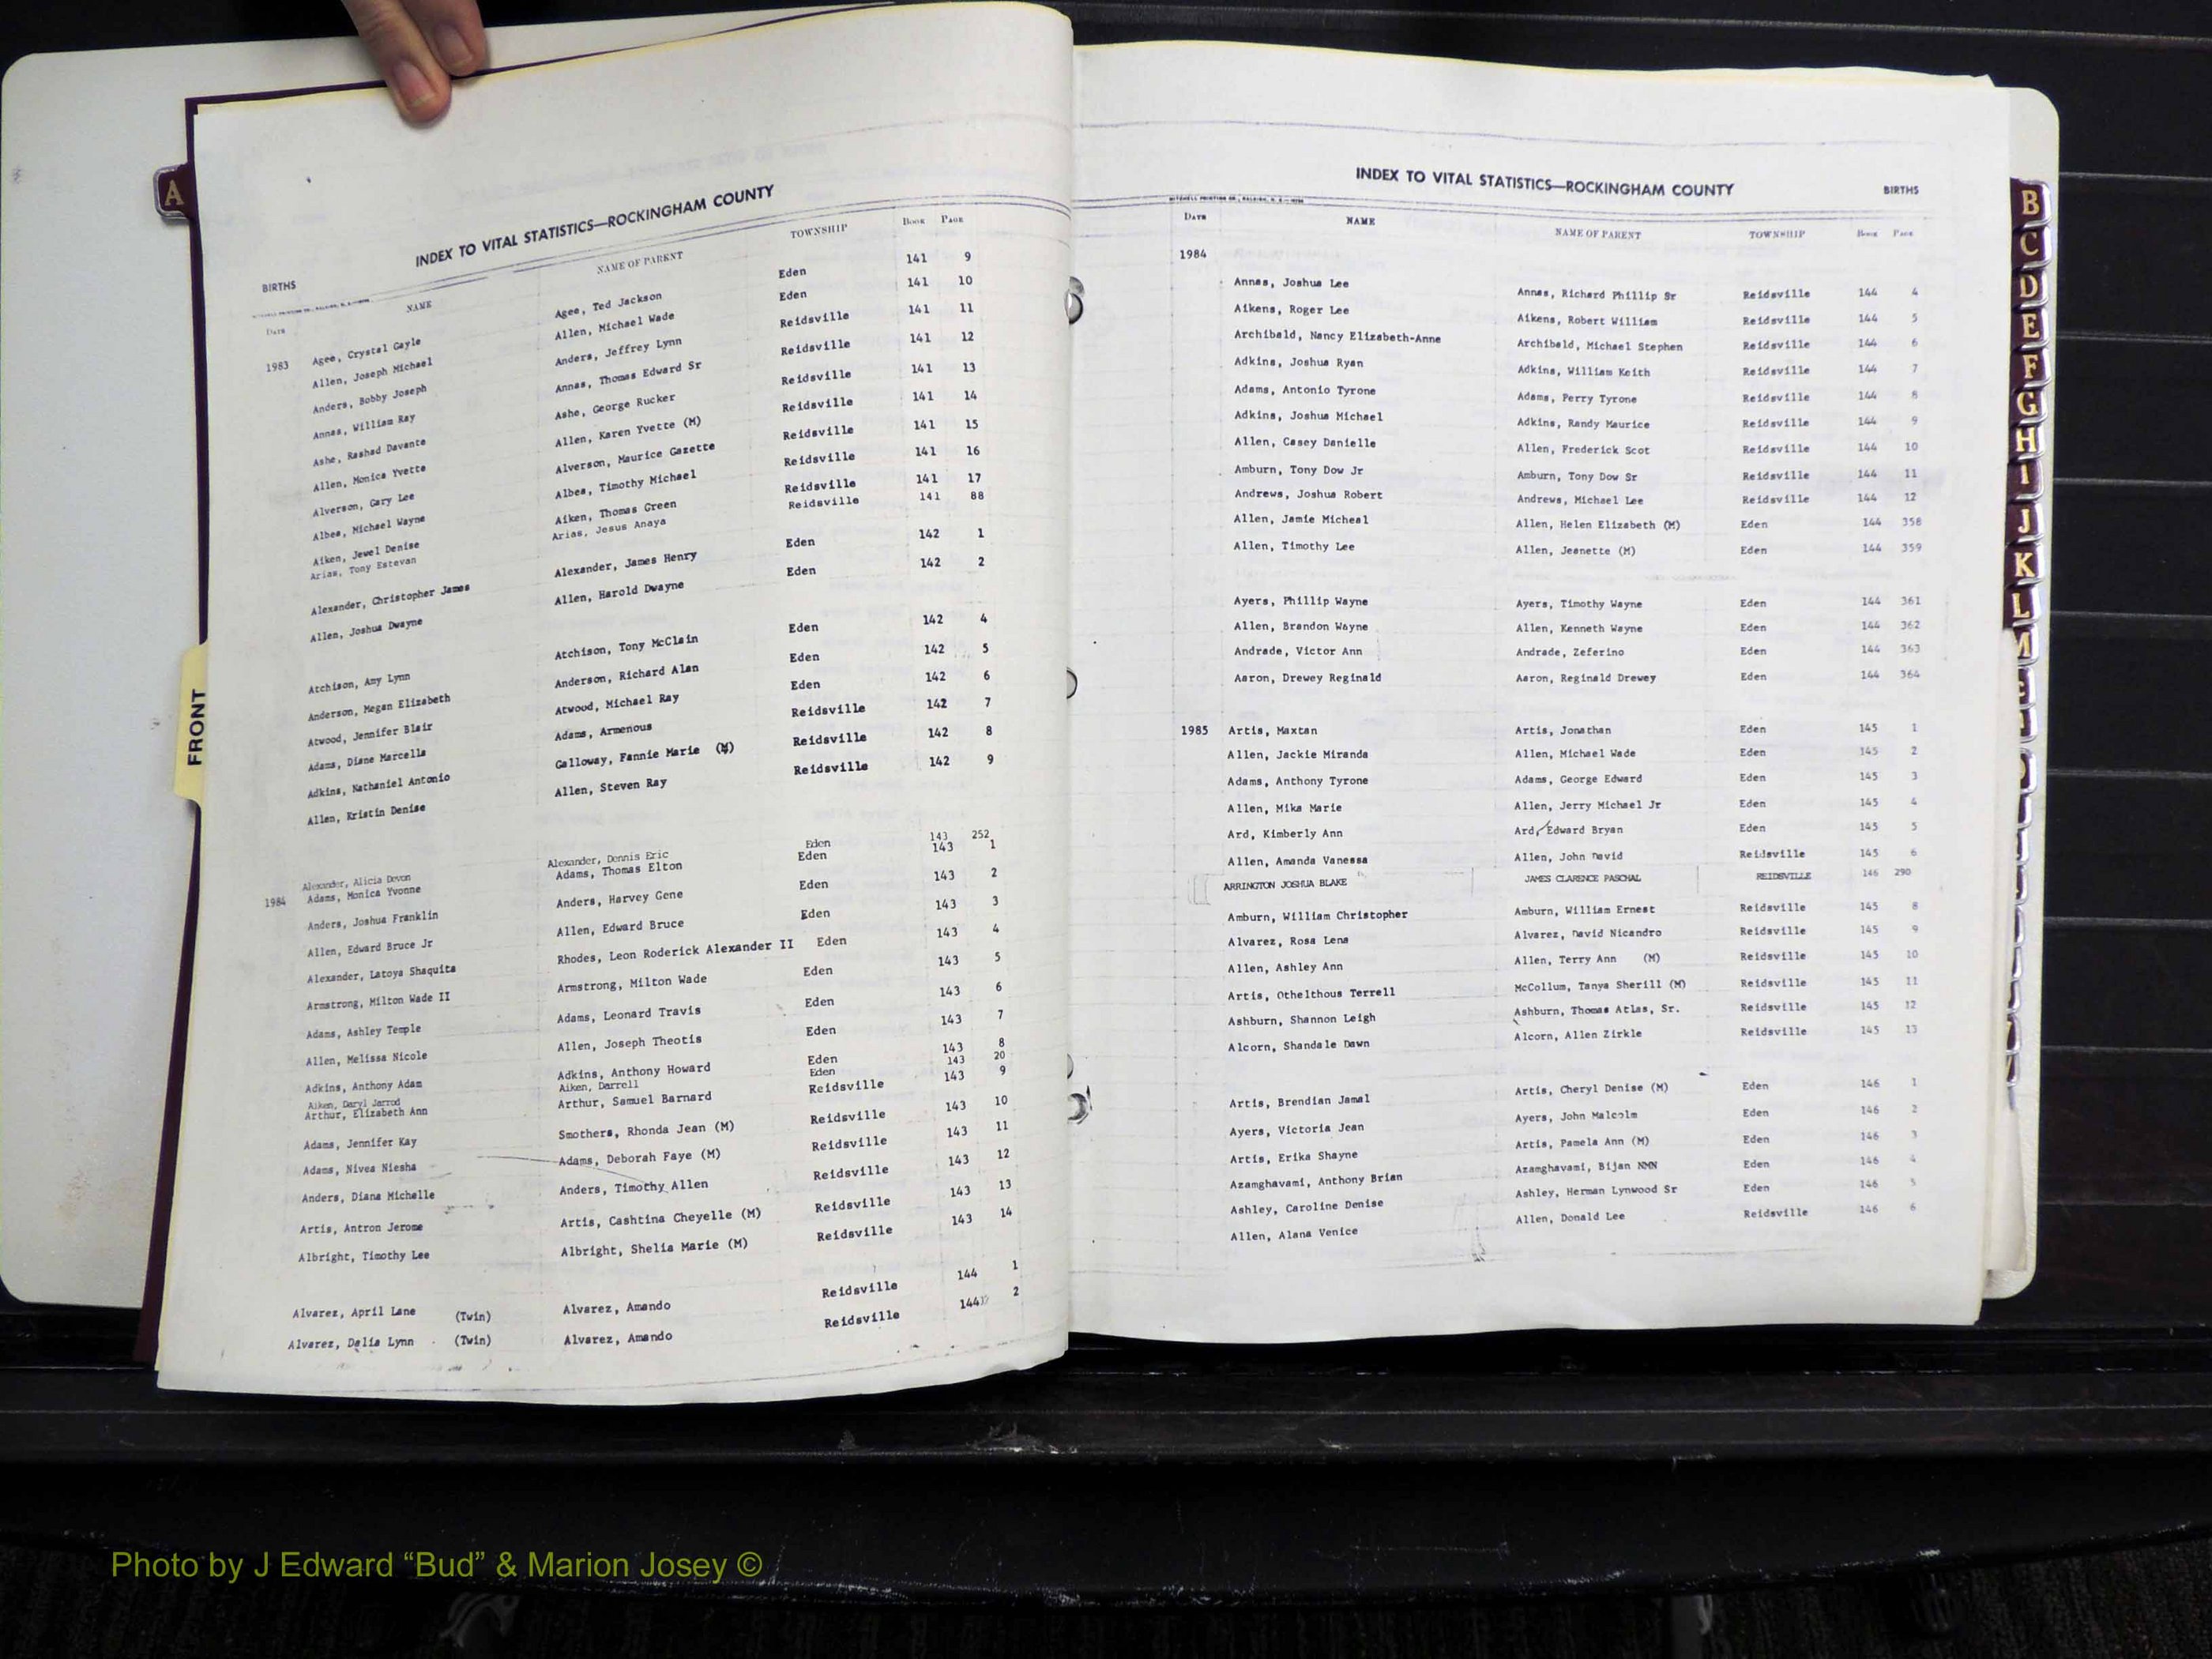 A
INDEX TO VITAL STATISTICS—ROCKINGHAM COUNTY
BIRTHS
Date NAME NAME OF PARENT TOWNSHIP Book Page
1983 Agee, Crystal Gayle Agee, Ted Jackson Eden 141 9
Allen, Joseph Michael Allen, Michael Wade Eden 141 10
Anders, Bobby Joseph Anders, Jeffrey Lynn Reidsville 141 11
Annas, William Ray Annas, Thomas Edward Sr Reidsville 141 12
Ashe, Rashad Davante Ashe, George Rucker Reidsville 141 13
Allen, Monica Yvette Allen, Karen Yvette (M) Reidsville 141 14
Alverson, Gary Lee Alverson, Maurice Gazette Reidsville 141 15
Albea, Michael Wayne Albea, Timothy Michael Reidsville 141 16
Aiken, Jewel Denise Aiken, Thomas Green Reidsville 141 17
Arias, Tony Estevan Arias, Jesus Anaya Reidsville 141 88
Alexander, Christopher James Alexander, James Henry Eden 142 1
Allen, Joshua Dwayne Allen, Harold Dwayne Eden 142 2
Atchison, Amy Lynn Atchison, Tony McClain Eden 142 4
Anderson, Megan Elizabeth Anderson, Richard Alan Eden 142 5
Atwood, Jennifer Blair Atwood, Michael Ray Eden 142 6
Adams, Diane Marcella Adams, Armenous Reidsville 142 7
Adkins, Nathaniel Antonio Galloway, Fannie Marie (M) Reidsville 142 8
Allen, Kristin Denise Allen, Steven Ray Reidsville 142 9
Alexander, Alicia Devon Alexander, Dennis Eric Eden 143 252
1984 Adams, Monica Yvonne Adams, Thomas Elton Eden 143 1
Anders, Joshua Franklin Anders, Harvey Gene Eden 143 2
Allen, Edward Bruce Jr Allen, Edward Bruce Eden 143 3
Alexander, Latoya Shaquita Rhodes, Leon Roderick Alexander II Eden 143 4
Armstrong, Milton Wade II Armstrong, Milton Wade Eden 143 5
Adams, Ashley Temple Adams, Leonard Travis Eden 143 6
Allen, Melissa Nicole Allen, Joseph Theotis Eden 143 7
Adkins, Anthony Adam Adkins, Anthony Howard Eden 143 8
Aiken, Daryl Jarrod Aiken, Darrell Eden 143 20
Arthur, Elizabeth Ann Arthur, Samuel Barnard Reidsville 143 9
Adams, Jennifer Kay Smothers, Rhonda Jean (M) Reidsville 143 10
Adams, Nivea Niesha Adams, Deborah Faye (M) Reidsville 143 11
Anders, Diana Michelle Anders, Timothy Allen Reidsville 143 12
Artis, Antron Jerome Artis, Cashtina Cheyelle (M) Reidsville 143 13
Albright, Timothy Lee Albright, Shelia Marie (M) Reidsville 143 14
Alvarez, April Lane (Twin) Alvarez, Amando Reidsville 144 1
Alvarez, Delia Lynn (Twin) Alvarez, Amando Reidsville 144 2
FRONT
INDEX TO VITAL STATISTICS—ROCKINGHAM COUNTY BIRTHS
Date NAME NAME OF PARENT TOWNSHIP Book Page
1984
Annas, Joshua Lee Annas, Richard Phillip Sr Reidsville 144 4
Aikens, Roger Lee Aikens, Robert William Reidsville 144 5
Archibald, Nancy Elizabeth-Anne Archibald, Michael Stephen Reidsville 144 6
Adkins, Joshua Ryan Adkins, William Keith Reidsville 144 7
Adams, Antonio Tyrone Adams, Perry Tyrone Reidsville 144 8
Adkins, Joshua Michael Adkins, Randy Maurice Reidsville 144 9
Allen, Casey Danielle Allen, Frederick Scot Reidsville 144 10
Amburn, Tony Dow Jr Amburn, Tony Dow Sr Reidsville 144 11
Andrews, Joshua Robert Andrews, Michael Lee Reidsville 144 12
Allen, Jamie Micheal Allen, Helen Elizabeth (M) Eden 144 358
Allen, Timothy Lee Allen, Jeanette (M) Eden 144 359
Ayers, Phillip Wayne Ayers, Timothy Wayne Eden 144 361
Allen, Brandon Wayne Allen, Kenneth Wayne Eden 144 362
Andrade, Victor Ann Andrade, Zeferino Eden 144 363
Aaron, Drewey Reginald Aaron, Reginald Drewey Eden 144 364
1985 Artis, Maxtan Artis, Jonathan Eden 145 1
Allen, Jackie Miranda Allen, Michael Wade Eden 145 2
Adams, Anthony Tyrone Adams, George Edward Eden 145 3
Allen, Mika Marie Allen, Jerry Michael Jr Eden 145 4
Ard, Kimberly Ann Ard, Edward Bryan Eden 145 5
Allen, Amanda Vanessa Allen, John David Reidsville 145 6
ARRINGTON JOSHUA BLAKE JAMES CLARENCE PASCHAL REIDSVILLE 146 290
Amburn, William Christopher Amburn, William Ernest Reidsville 145 8
Alvarez, Rosa Lena Alvarez, David Nicandro Reidsville 145 9
Allen, Ashley Ann Allen, Terry Ann (M) Reidsville 145 10
Artis, Othelthous Terrell McCollum, Tanya Sherill (M) Reidsville 145 11
Ashburn, Shannon Leigh Ashburn, Thomas Atlas, Sr. Reidsville 145 12
Alcorn, Shandale Dawn Alcorn, Allen Zirkle Reidsville 145 13
Artis, Brendian Jamal Artis, Cheryl Denise (M) Eden 146 1
Ayers, Victoria Jean Ayers, John Malcolm Eden 146 2
Artis, Erika Shayne Artis, Pamela Ann (M) Eden 146 3
Azamghavami, Anthony Brian Azamghavami, Bijan NMN Eden 146 4
Ashley, Caroline Denise Ashley, Herman Lynwood Sr Eden 146 5
Allen, Alana Venice Allen, Donald Lee Reidsville 146 6
B
C
D
E
F
G
H
I
J
K
L
M
Photo by J Edward “Bud” & Marion Josey ©